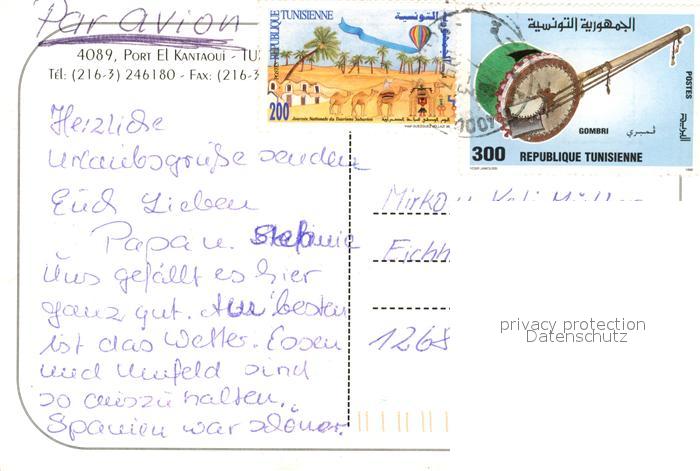 Par avion
4089, Port El Kantaoui - TU
Tél: (216-3) 246180 - Fax: (216-3
REPUBLIQUE TUNISIENNE
الجمهورية التونسية
200
Journée Nationale du Tourisme Saharien
الجمهورية التونسية
POSTES
البريد
GOMBRI
ڤمبري
300 REPUBLIQUE TUNISIENNE
Herzliche
Urlaubsgrüße senden
Euch Lieben
Papa u. Stefanie
Uns gefällt es hier
ganz gut. Am besten
ist das Wetter. Essen
und Umfeld sind
so auszuhalten.
Spanien war schöner.
Mirko
Eichh
1268
privacy protection
Datenschutz